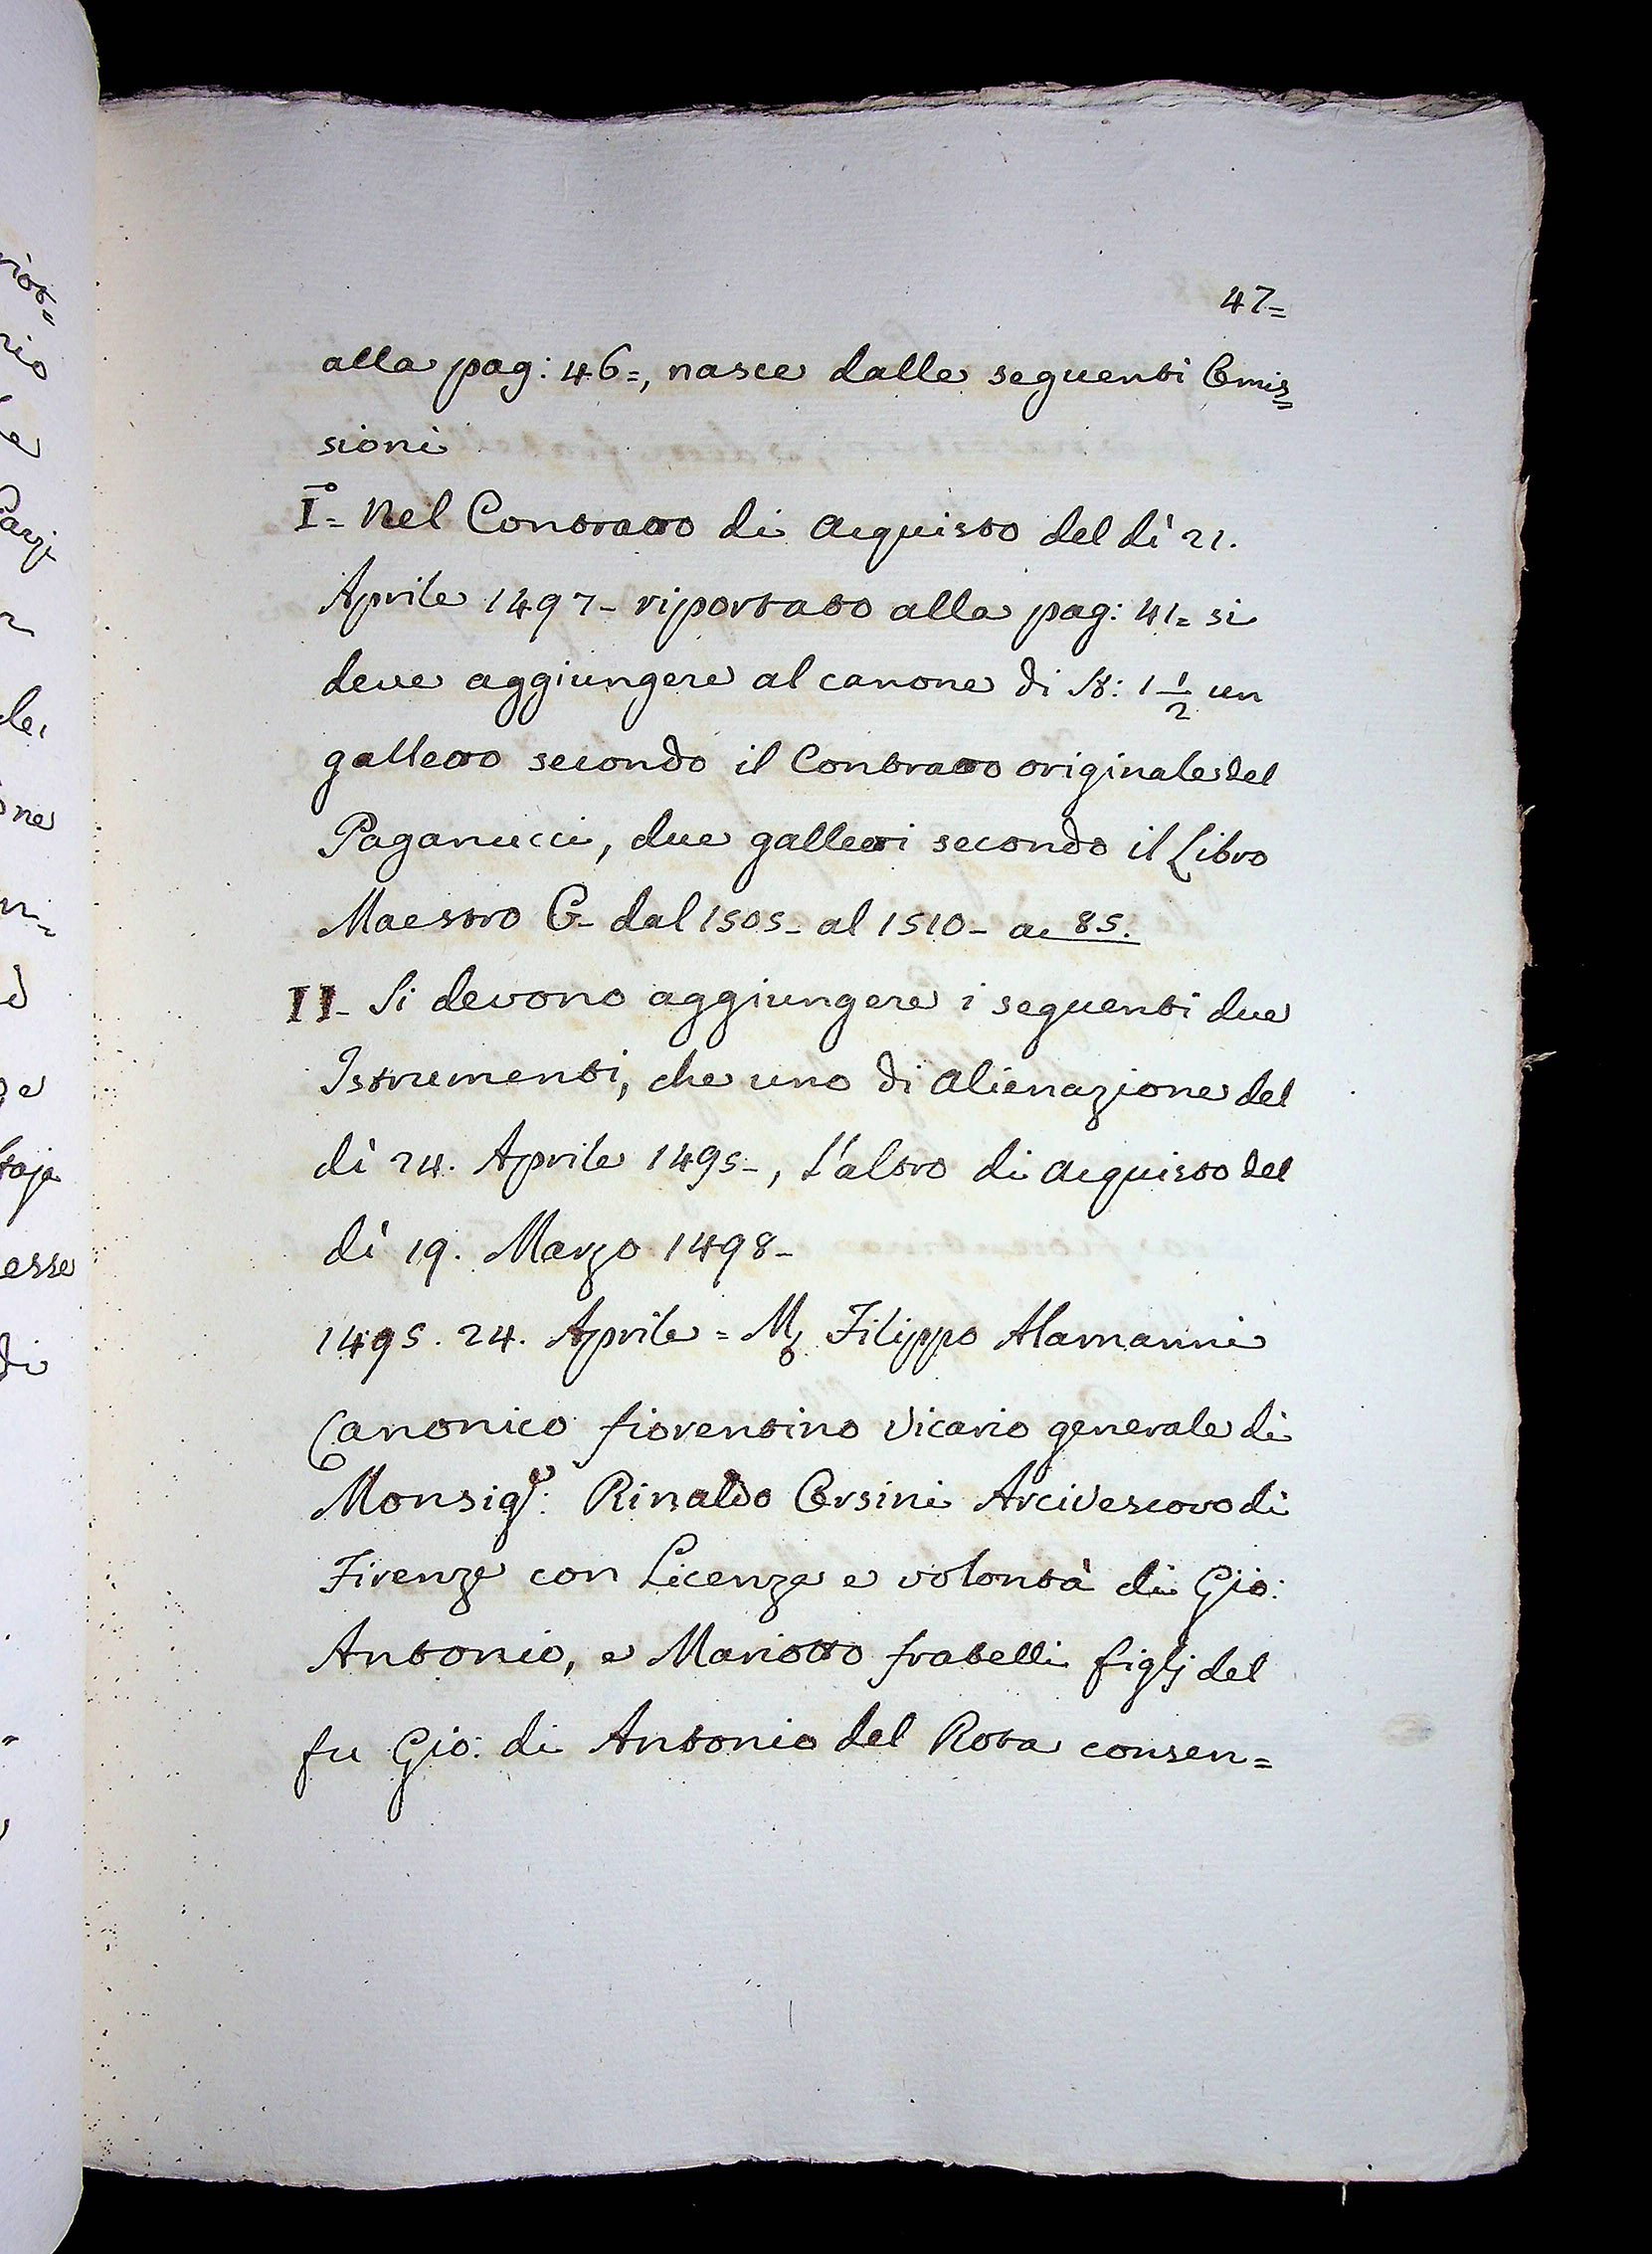 47=
alla pag: 46=, nasce dalle seguenti Omis=
sioni
I°= Nel Contratto di Acquisto del dì 21.
Aprile 1497- riportato alla pag: 41= si
deve aggiungere al canone di 1 1/2 un
galletto secondo il Contratto originale del
Paganucci, due galletti secondo il Libro
Maestro G- dal 1505- al 1510- a 85.
II- Si devono aggiungere i seguenti due
Istrumenti, che uno di Alienazione del
dì 24. Aprile 1495-, l'altro di Acquisto del
dì 19. Marzo 1498-
1495. 24. Aprile = Mr Filippo Alamanni
Canonico fiorentino Vicario generale di
Monsigr: Rinaldo Orsini Arcivescovo di
Firenze con Licenza e volontà di Gio:
Antonio, e Mariotto fratelli figlj del
fu Gio: di Antonio del Rota consen=